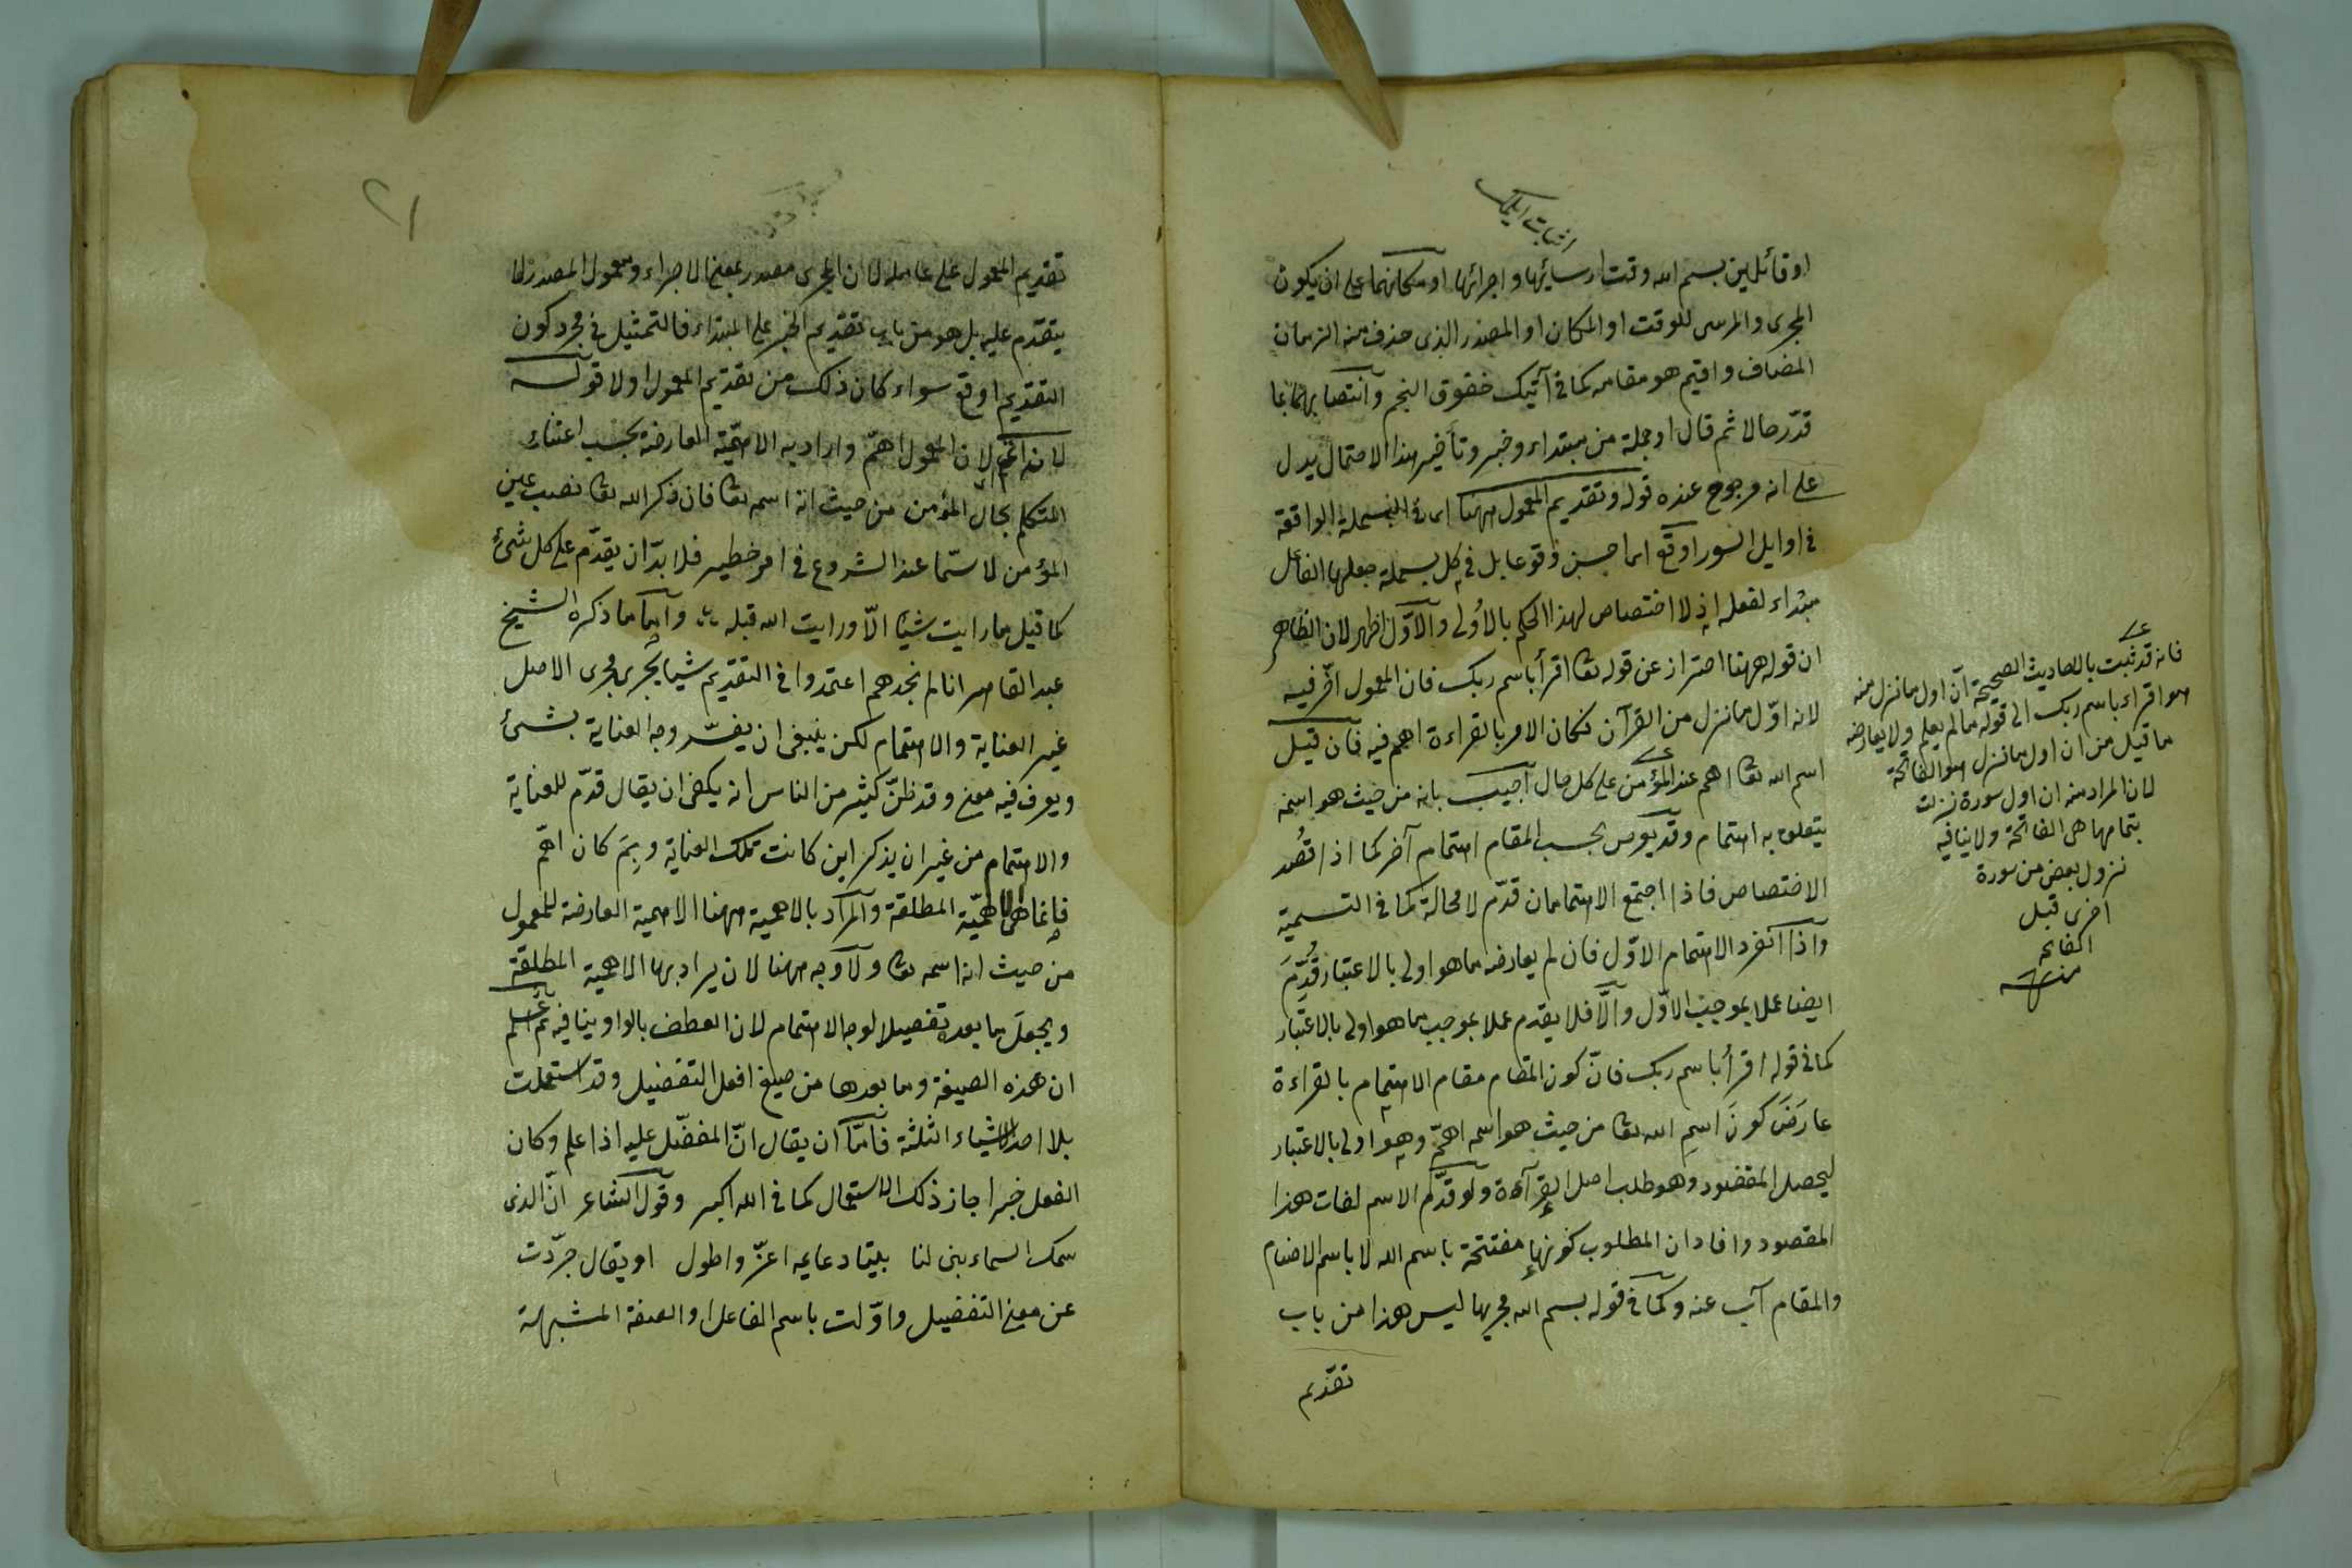 او قائلين بسم الله وقت ارسائها واجرائها او مكانهما على ان يكون
المجرى والمرسى للوقت او المكان او المصدر الذى حذف منه الزمان
المضاف واقيم هو مقامه كما فى آتيك خفوق النجم وانتصابهما بما
قدّر حالا ثم قال او جملة من مبتداء وخبر وتأخير هذا الاحتمال يدل
على انه مرجوح عنده قوله وتقديم المعمول ههنا اى فى البسملة الواقعة
فى اوايل السور اوقع اى احسن وقوعا بل فى كل بسملة جعلها الفاعل
مبتداء لفعله اذ لا اختصاص لهذا الحكم بالأولى والاوّل اظهر لان الظاهر
ان قوله ههنا احتراز عن قوله تعا اقرأ باسم ربك فان المعمول اخّر فيه
لانه اوّل ما نزل من القرآن فكان الامر بالقراءة اهم فيه فان قيل
اسم الله تعا اهم عند المؤمن على كل حال اجيب بانه من حيث هو اسمه
يتعلق به اهتمام وقد يعرض بحسب المقام اهتمام آخر كما اذا قُصد
الاختصاص فاذا اجتمع الاهتمامان قدّم لا محالة كما فى التسمية
واذا انفرد الاهتمام الاوّل فان لم يعارضه ما هو اولى بالاعتبار قُدِّمَ
ايضا عملا بموجب الاوّل والّا فلا يقدم عملا بموجب ما هو اولى بالاعتبار
كما فى قوله اقرأ باسم ربك فانّ كون المقام مقام الاهتمام بالقراءة
عارَضَ كونَ اسمِ الله تعا من حيث هو اسمه اهمّ وهو اولى بالاعتبار
ليحصل المقصود وهو طلب اصل القراءة ولو قدّم الاسم لفات هذا
المقصود وافاد ان المطلوب كونها مفتتحة باسم الله لا باسم الاصنام
والمقام آب عنه وكما فى قوله بسم الله مجريها ليس هذا من باب
تقديم
فانه قد ثبت بالاحاديث الصحيحة ان اول ما نزل منه
هو اقراء باسم ربك الى قوله ما لم يعلم ولا يعارضه
ما قيل من ان اول ما نزل هو الفاتحة
لان المراد منه ان اول سورة نزلت
بتمامها هى الفاتحة ولا ينافيه
نزول بعض من سورة
اخرى قبل
الفاتحه
منه
٢١
تقديم المعمول على عامله لان المجرى مصدر بمعنى الاجراء ومعمول المصدر لا
يتقدّم عليه بل هو من باب تقديم الخبر على المبتداء فالتمثيل فى مجرد كون
التقديم اوقع سواء كان ذلك من تقديم المعمول او لا قوله
لانه اهم لان المعمول اهمّ واراد به الاهمّية العارضة بحسب اعتناء
المتكلم بحال المؤمن من حيث انه اسمه تعا فان ذكر الله تعا نصب عين
المؤمن لا سيّما عند الشروع فى امر خطير فلا بدّ ان يقدّم على كل شئ
كما قيل ما رايت شيئا الّا ورايت الله قبله وامّا ما ذكره الشيخ
عبد القاهر انا لم نجدهم اعتمدوا فى التقديم شيئا يجرى مجرى الاصل
غير العناية والاهتمام لكن ينبغى ان يفسّر وجه العناية بشئ
ويعرف فيه معنى وقد ظنّ كثير من الناس انه يكفى ان يقال قدّم للعناية
والاهتمام من غير ان يذكر اين كانت تلك العناية وبِمَ كان اهمّ
فانما هى الاهمّية المطلقة والمراد بالاهمية ههنا الاهمية العارضة للمعمول
من حيث انه اسمه تعا ولا وجه ههنا لان يراد بها الاهمية المطلقة
ويجعلَ ما بعده تفصيلا لوجه الاهتمام لان العطف بالواو ينافيه ثم اعلم
ان هذه الصيغة وما بعدها من صيغ افعل التفضيل وقد استعملت
بلا احد الاشياء الثلثة فامّا ان يقال انّ المفضّل عليه اذا علم وكان
الفعل خبرا جاز ذلك الاستعمال كما فى الله اكبر وقول الشاعر انّ الذى
سمك السماء بنى لنا بيتا دعايمه اعزّ واطول او يقال جرّدت
عن معنى التفضيل واوّلت باسم الفاعل او الصفة المشبهة